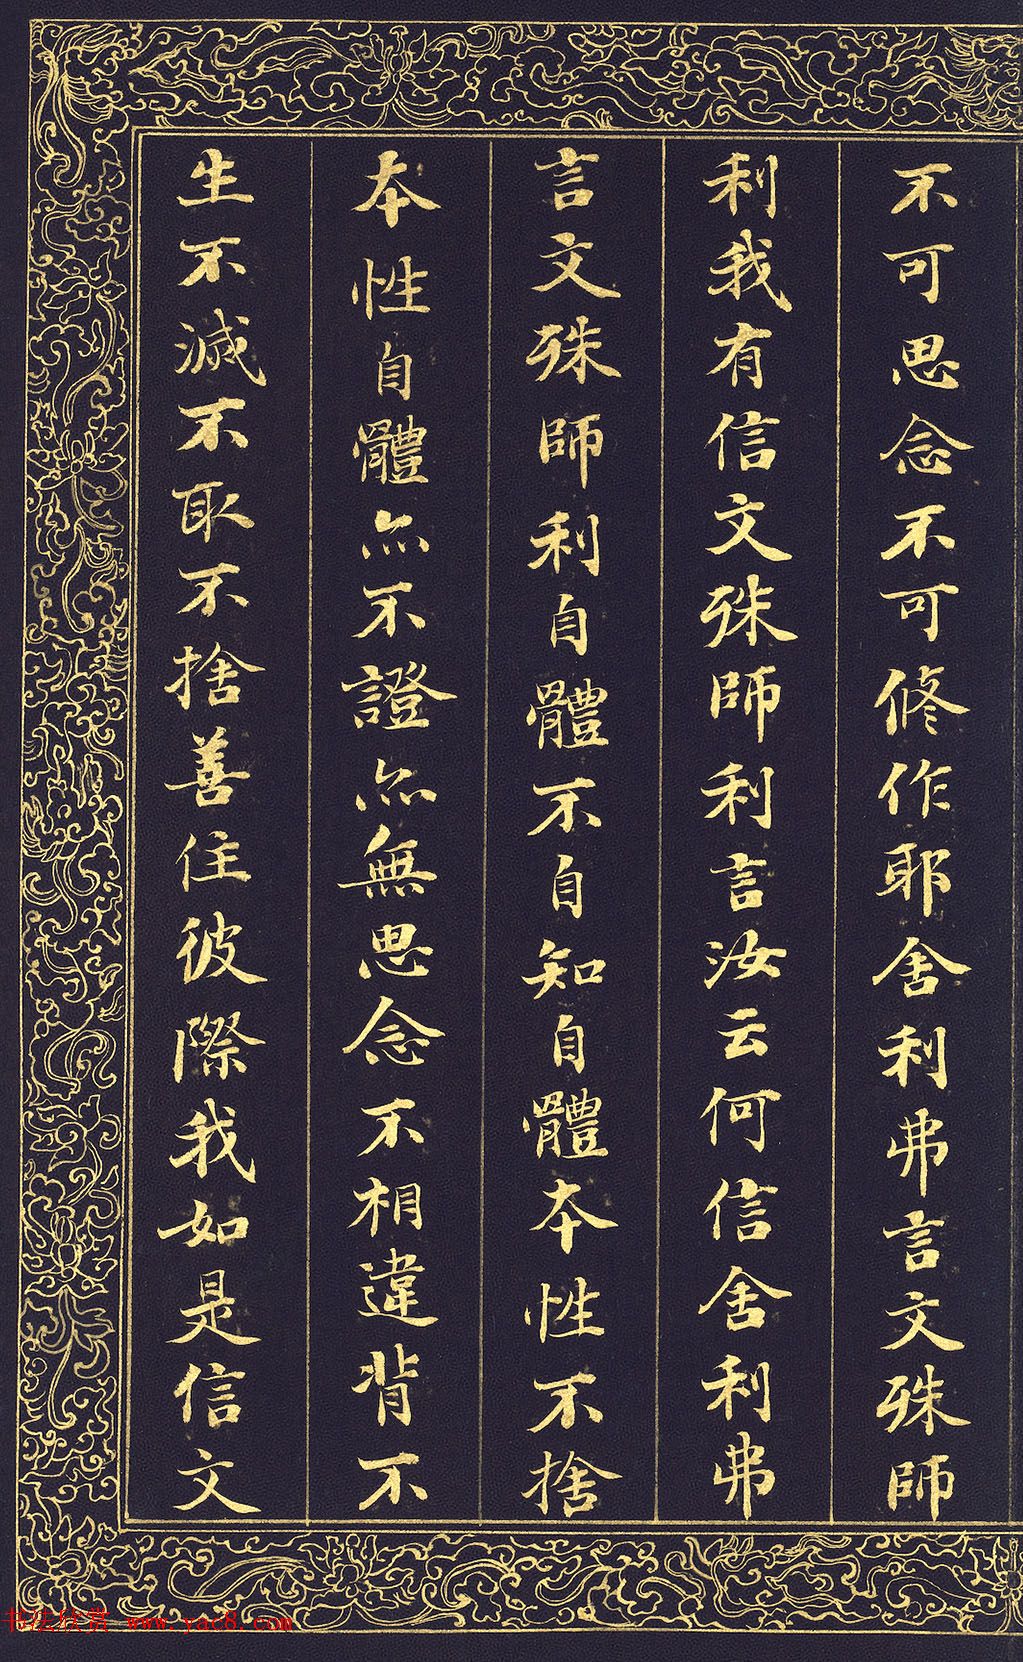 不可思念不可修作耶舍利弗言文殊師
利我有信文殊師利言汝云何信舍利弗
言文殊師利自體不自知自體本性不捨
本性自體亦不證亦無思念不相違背不
生不滅不取不捨善住彼際我如是信文
书法欣赏 www.yac8.com